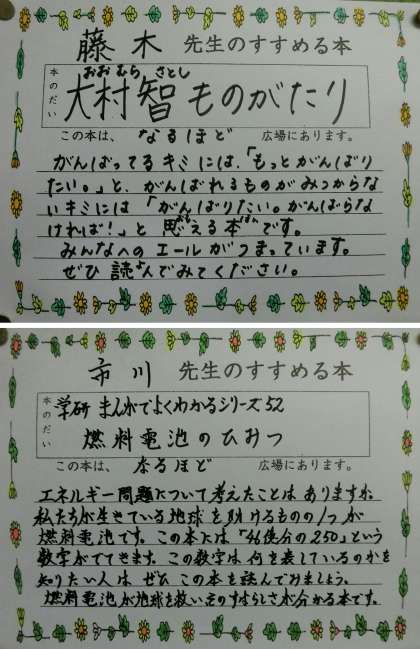 藤木 先生のすすめる本
本のだい
おおむら さとし
大村智ものがたり
この本は、 なるほど 広場にあります。
がんばってるキミには、「もっとがんばり
たい。」と、がんばれるものがみつからな
いキミには「がんばりたい。がんばらな
ければ!」と思える本です。
みんなへのエールがつまっています。
ぜひ読んでみてください。
市川 先生のすすめる本
本のだい
学研 まんがでよくわかるシリーズ52
燃料電池のひみつ
この本は、 なるほど 広場にあります。
エネルギー問題について考えたことはありますか。
私たちが生きている地球を助けるものの1つが
燃料電池です。この本には「46億分の250」という
数字がでてきます。この数字は何を表しているのかを
知りたい人は ぜひ この本を読んでみましょう。
燃料電池が地球を救い そのすばらしさが分かる本です。